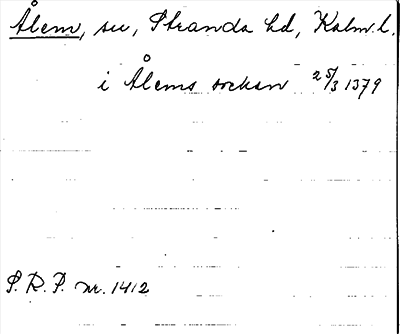 Ålem, sn, Stranda hd, Kalm. l.
i Ålems sockan 25/3 1379
S. R. P. nr. 1412